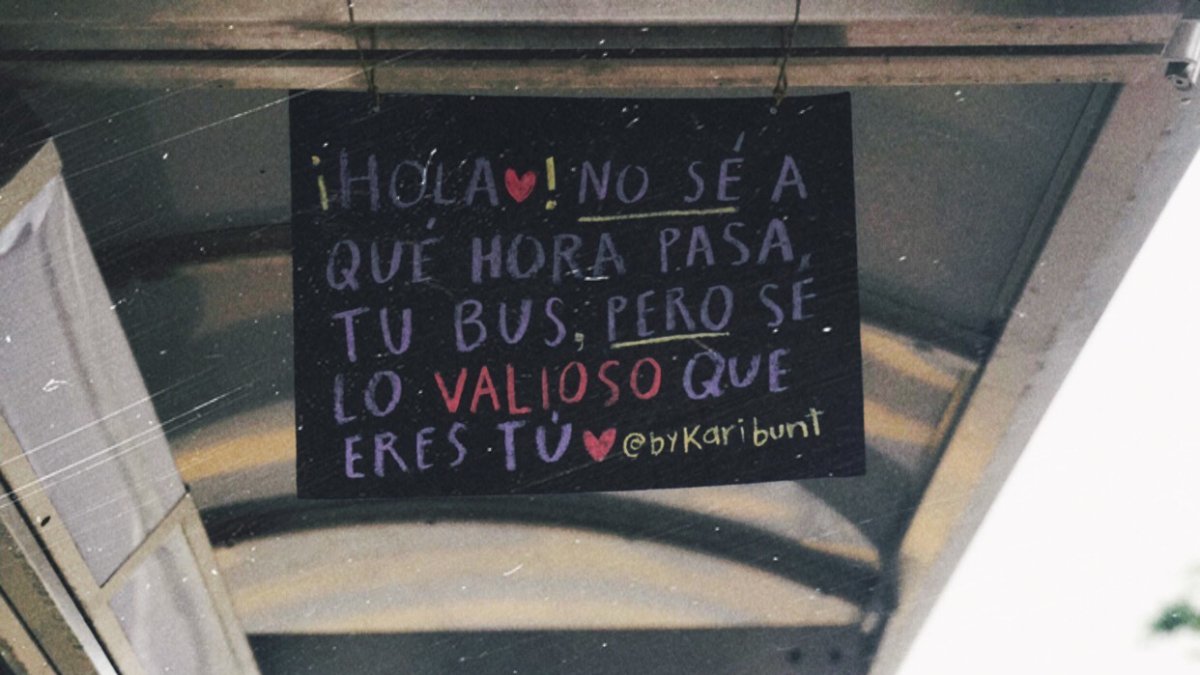 ¡HOLA♥! NO SÉ A
QUÉ HORA PASA,
TU BUS, PERO SÉ
LO VALIOSO QUE
ERES TÚ♥ @byKaribunt